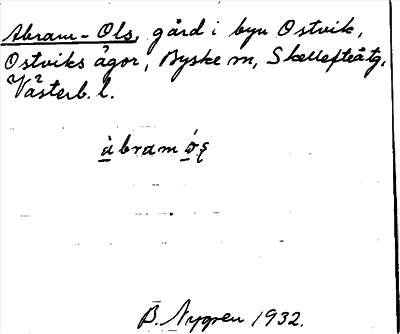 Abram-Ols, gård i byn Ostvik,
Ostviks ägor, Byske sn, Skellefteåtg,
Västerb. l.
àbramós̨
B. Nygren 1932.